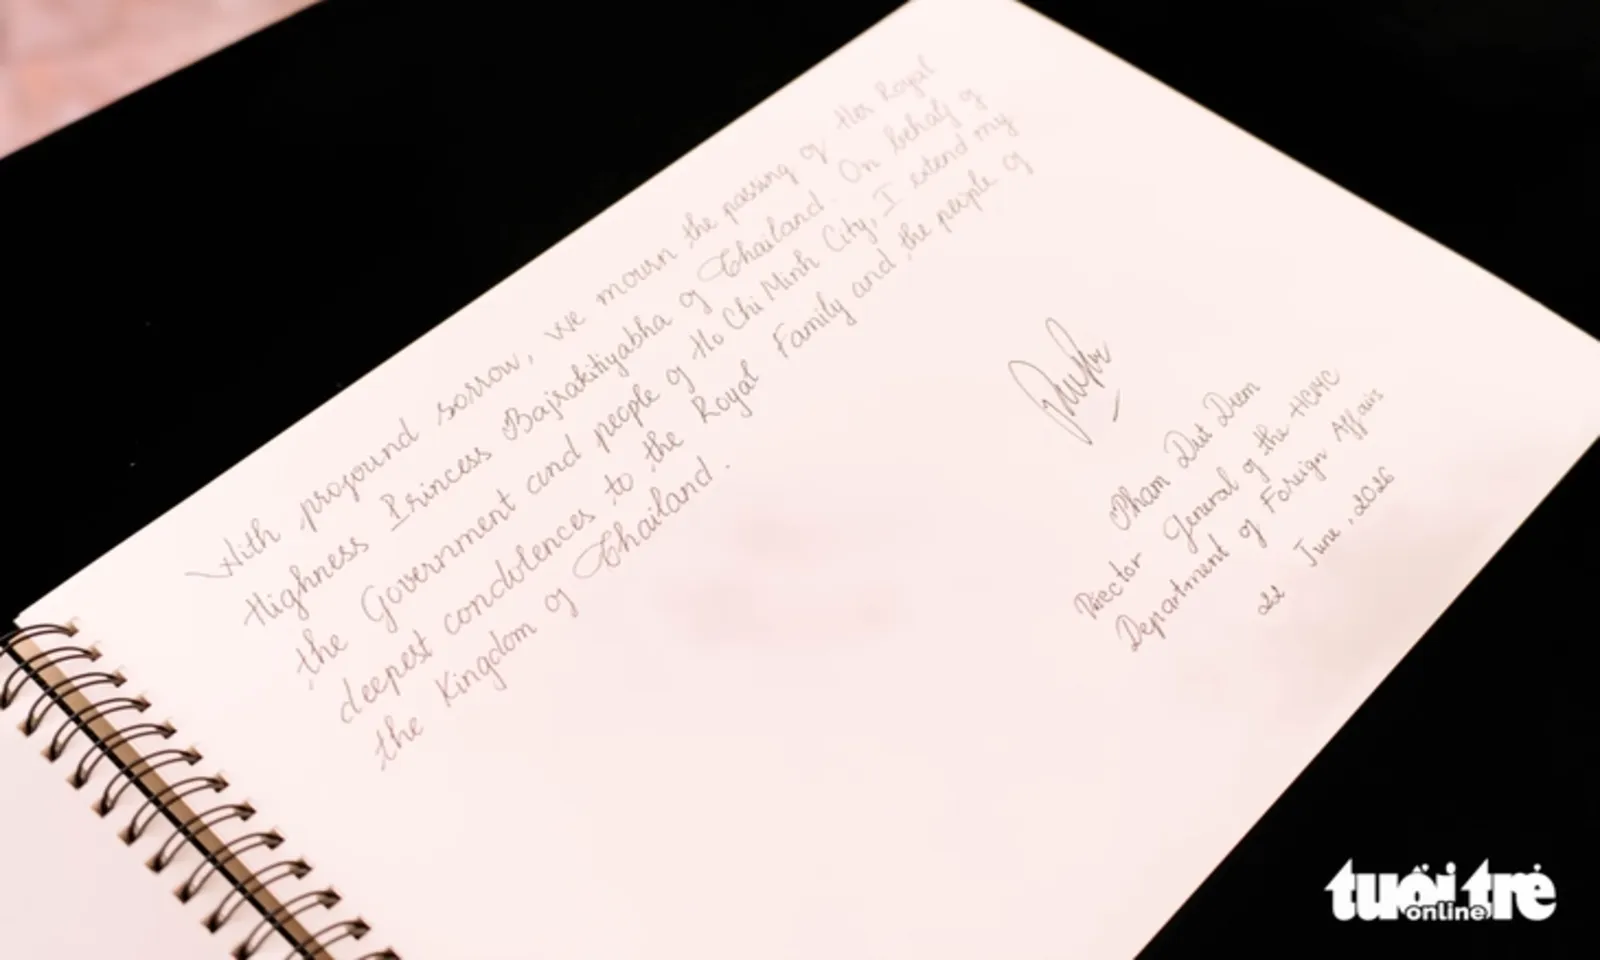 With profound sorrow, we mourn the passing of Her Royal
Highness Princess Bajrakitiyabha of Thailand. On behalf of
the Government and people of Ho Chi Minh City, I extend my
deepest condolences to the Royal Family and the people of
the Kingdom of Thailand.
Pham Dut Diem
Director General of the HCMC
Department of Foreign Affairs
22 June, 2026
tuổi trẻ
online